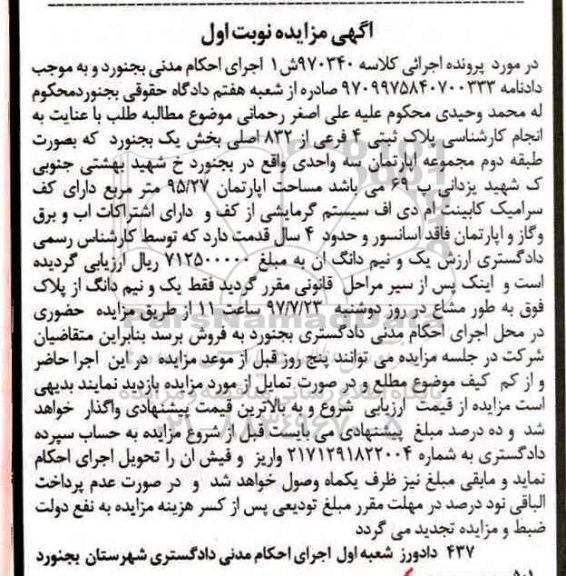 آگهی مزایده نوبت اول
در مورد پرونده اجرائی کلاسه ۹۷۰۳۴۰ش۱ اجرای احکام مدنی بجنورد و به موجب
دادنامه ۹۷۰۹۹۷۵۸۴۰۷۰۰۳۳۳ صادره از شعبه هفتم دادگاه حقوقی بجنوردمحکوم
له محمد وحیدی محکوم علیه علی اصغر رحمانی موضوع مطالبه طلب با عنایت به
انجام کارشناسی پلاک ثبتی ۴ فرعی از ۸۳۲ اصلی بخش یک بجنورد که بصورت
طبقه دوم مجموعه اپارتمان سه واحدی واقع در بجنورد خ شهید بهشتی جنوبی
ک شهید یزدانی پ ۶۹ می باشد مساحت اپارتمان ۹۵/۲۷ متر مربع دارای کف
سرامیک کابینت ام دی اف سیستم گرمایشی از کف و دارای اشتراکات اب و برق
وگاز و اپارتمان فاقد اسانسور و حدود ۴ سال قدمت دارد که توسط کارشناس رسمی
دادگستری ارزش یک و نیم دانگ ان به مبلغ ۷۱۲۵۰۰۰۰۰ ریال ارزیابی گردیده
است و اینک پس از سیر مراحل قانونی مقرر گردید فقط یک و نیم دانگ از پلاک
فوق به طور مشاع در روز دوشنبه ۹۷/۷/۲۳ ساعت ۱۱ از طریق مزایده حضوری
در محل اجرای احکام مدنی دادگستری بجنورد به فروش برسد بنابراین متقاضیان
شرکت در جلسه مزایده می توانند پنج روز قبل از موعد مزایده در این اجرا حاضر
و از کم کیف موضوع مطلع و در صورت تمایل از مورد مزایده بازدید نمایند بدیهی
است مزایده از قیمت ارزیابی شروع و به بالاترین قیمت پیشنهادی واگذار خواهد
شد و ده درصد مبلغ پیشنهادی می بایست قبل از شروع مزایده به حساب سپرده
دادگستری به شماره ۲۱۷۱۲۹۱۸۲۲۰۰۴ واریز و فیش ان را تحویل اجرای احکام
نماید و مابقی مبلغ نیز ظرف یکماه وصول خواهد شد و در صورت عدم پرداخت
الباقی نود درصد در مهلت مقرر مبلغ تودیعی پس از کسر هزینه مزایده به نفع دولت
ضبط و مزایده تجدید می گردد
۴۳۷ دادورز شعبه اول اجرای احکام مدنی دادگستری شهرستان بجنورد